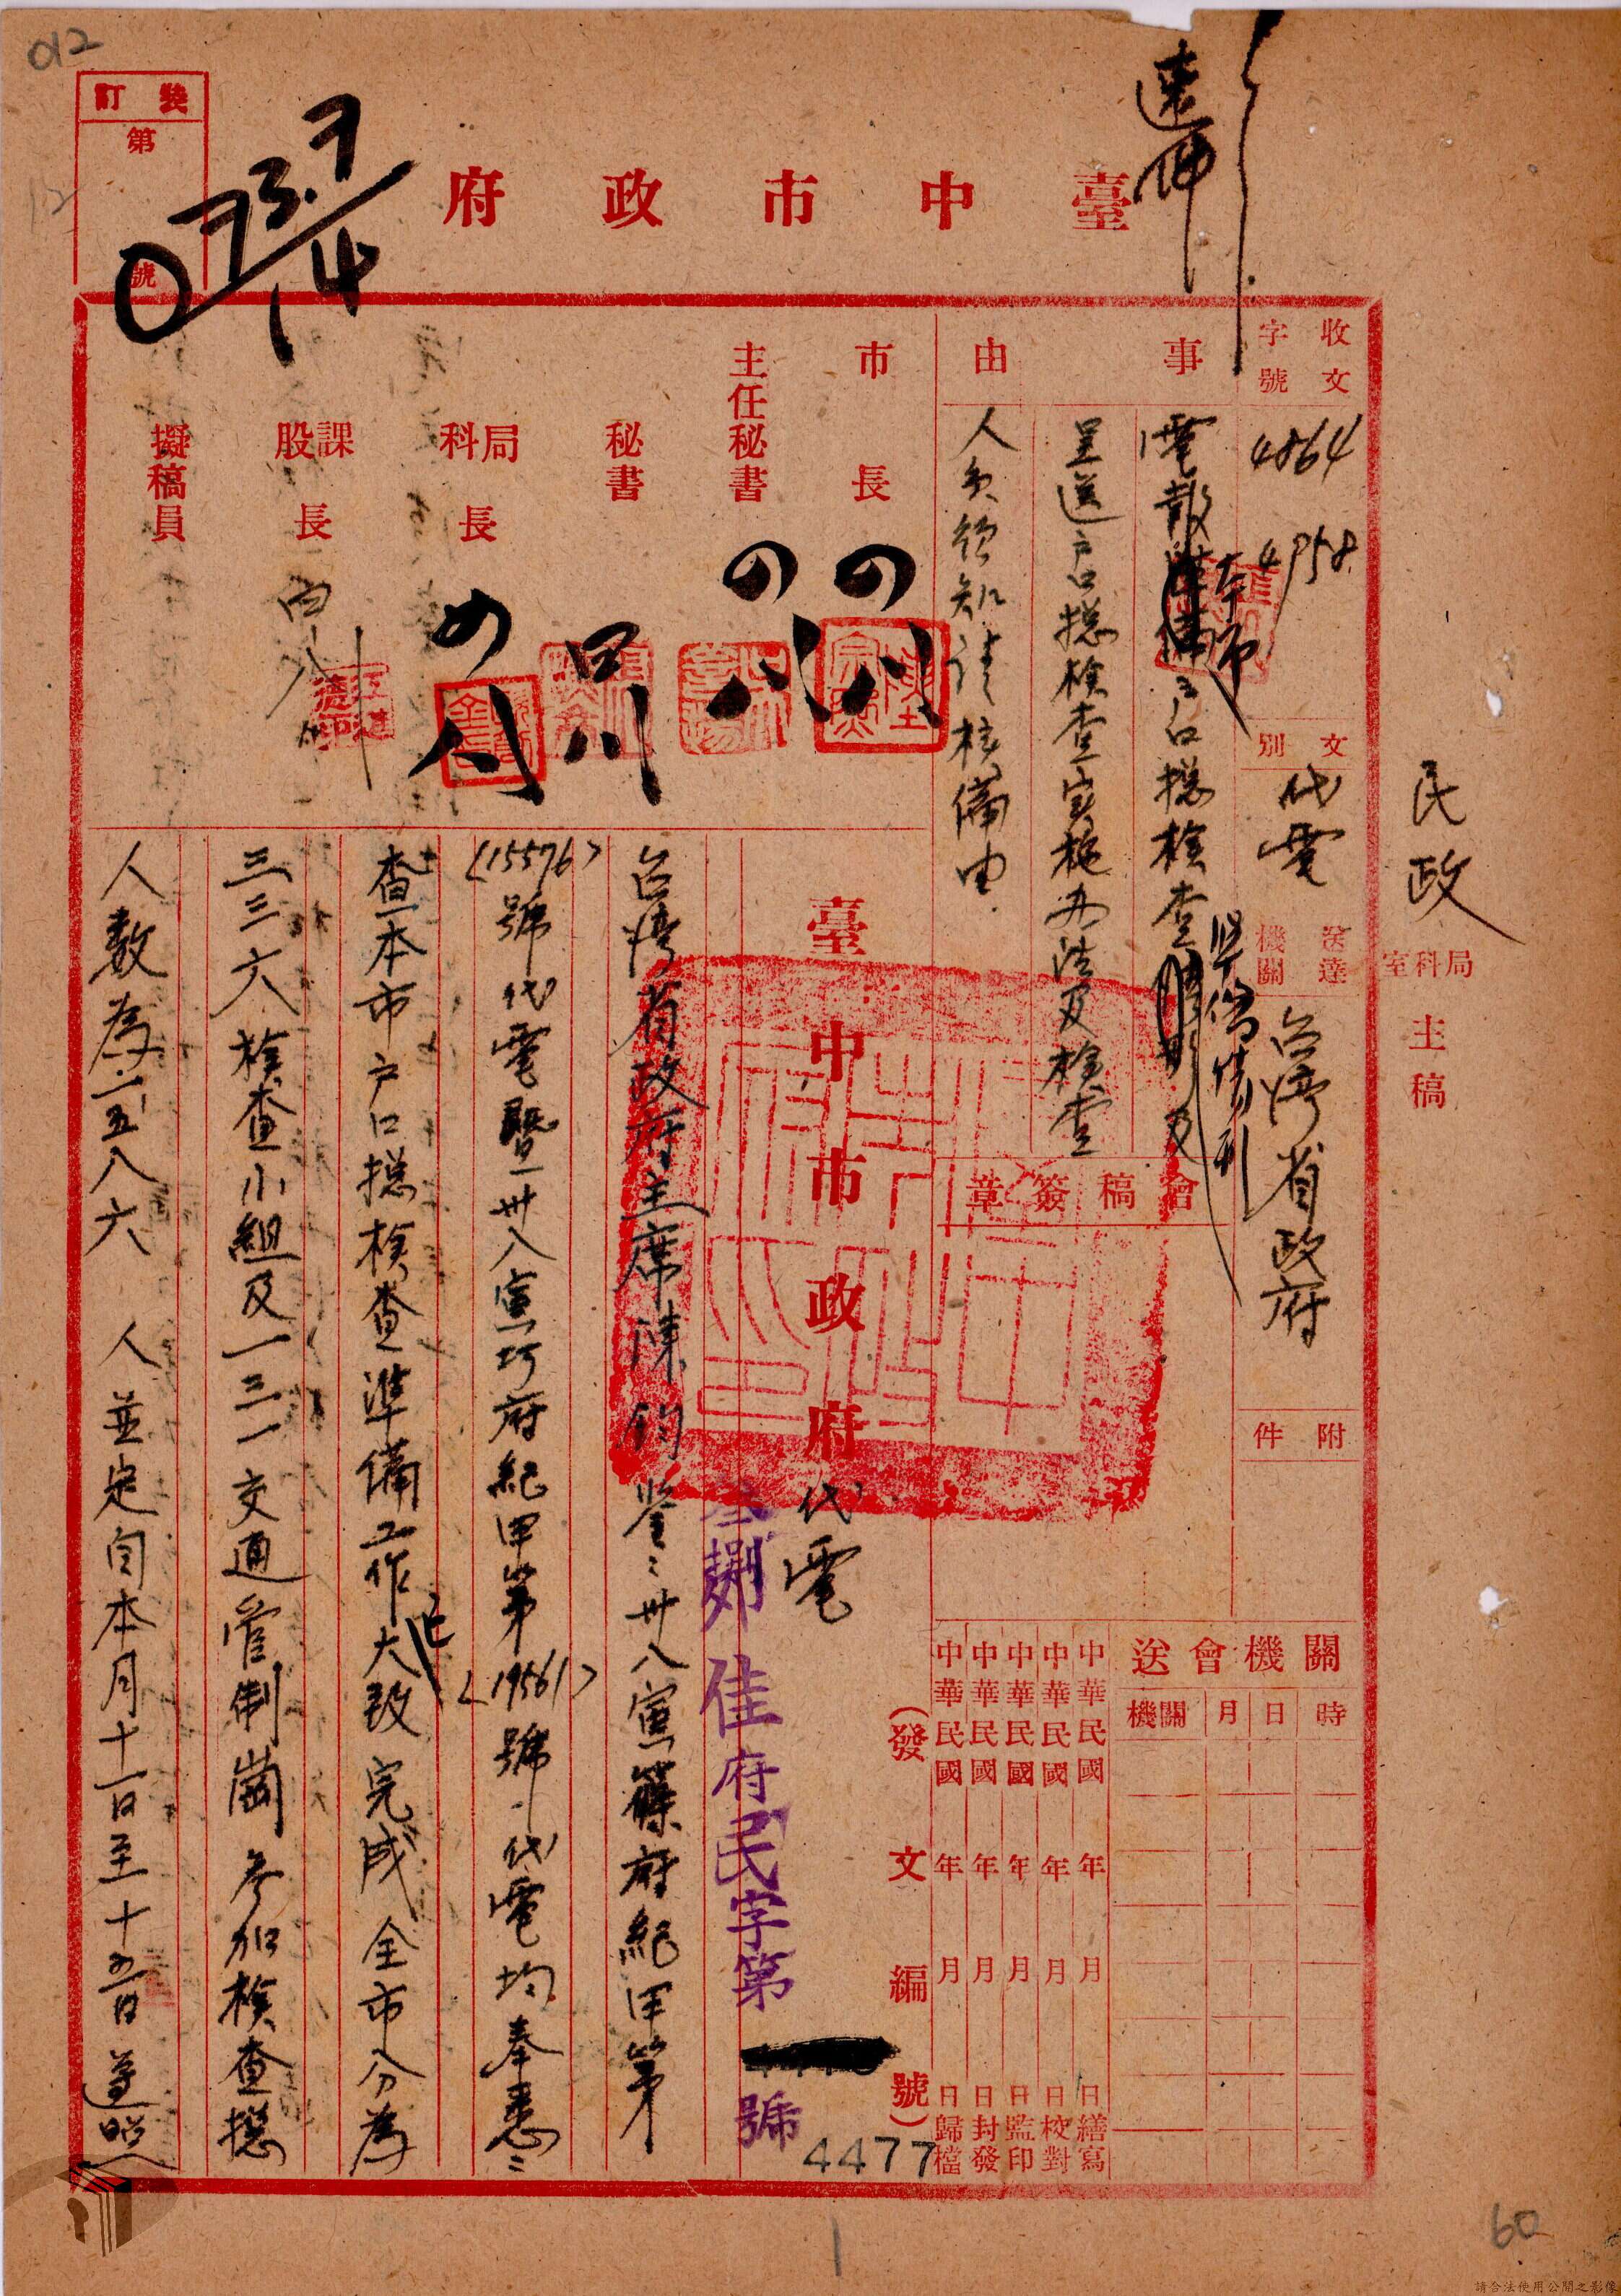 012
裝訂
第
號
12
073.7/14
速件
臺中市政府
民政
局科室主稿
收文字號
4864
4958
文別
代電
送達機關
台灣省政府
附件
事由
電報本市戶口總檢查準備情形及
呈送戶口總檢查實施办法及檢查
人員須知請核備由
會稿簽章
市長
主任秘書
秘書
局科長
課股長
擬稿員
關機會送
時日月機關
中華民國年月日繕寫
中華民國年月日校對
中華民國年月日監印
中華民國年月日封發
中華民國年月日歸檔
(發文編號)
臺中市政府代電
叁捌佳府民字第號
4477
台灣省政府主席陳鈞鑒:卅八寅篠府紀甲第
(15576)號代電暨卅八寅巧府紀甲第(19561)號代電均奉悉:
查本市戶口總檢查準備工作已大致完成全市分為
三三六檢查小組及一三一交通管制崗參加檢查總
人數為一五八六人並定自本月十一日至十五日遵照
60
1
請合法使用公開之影像